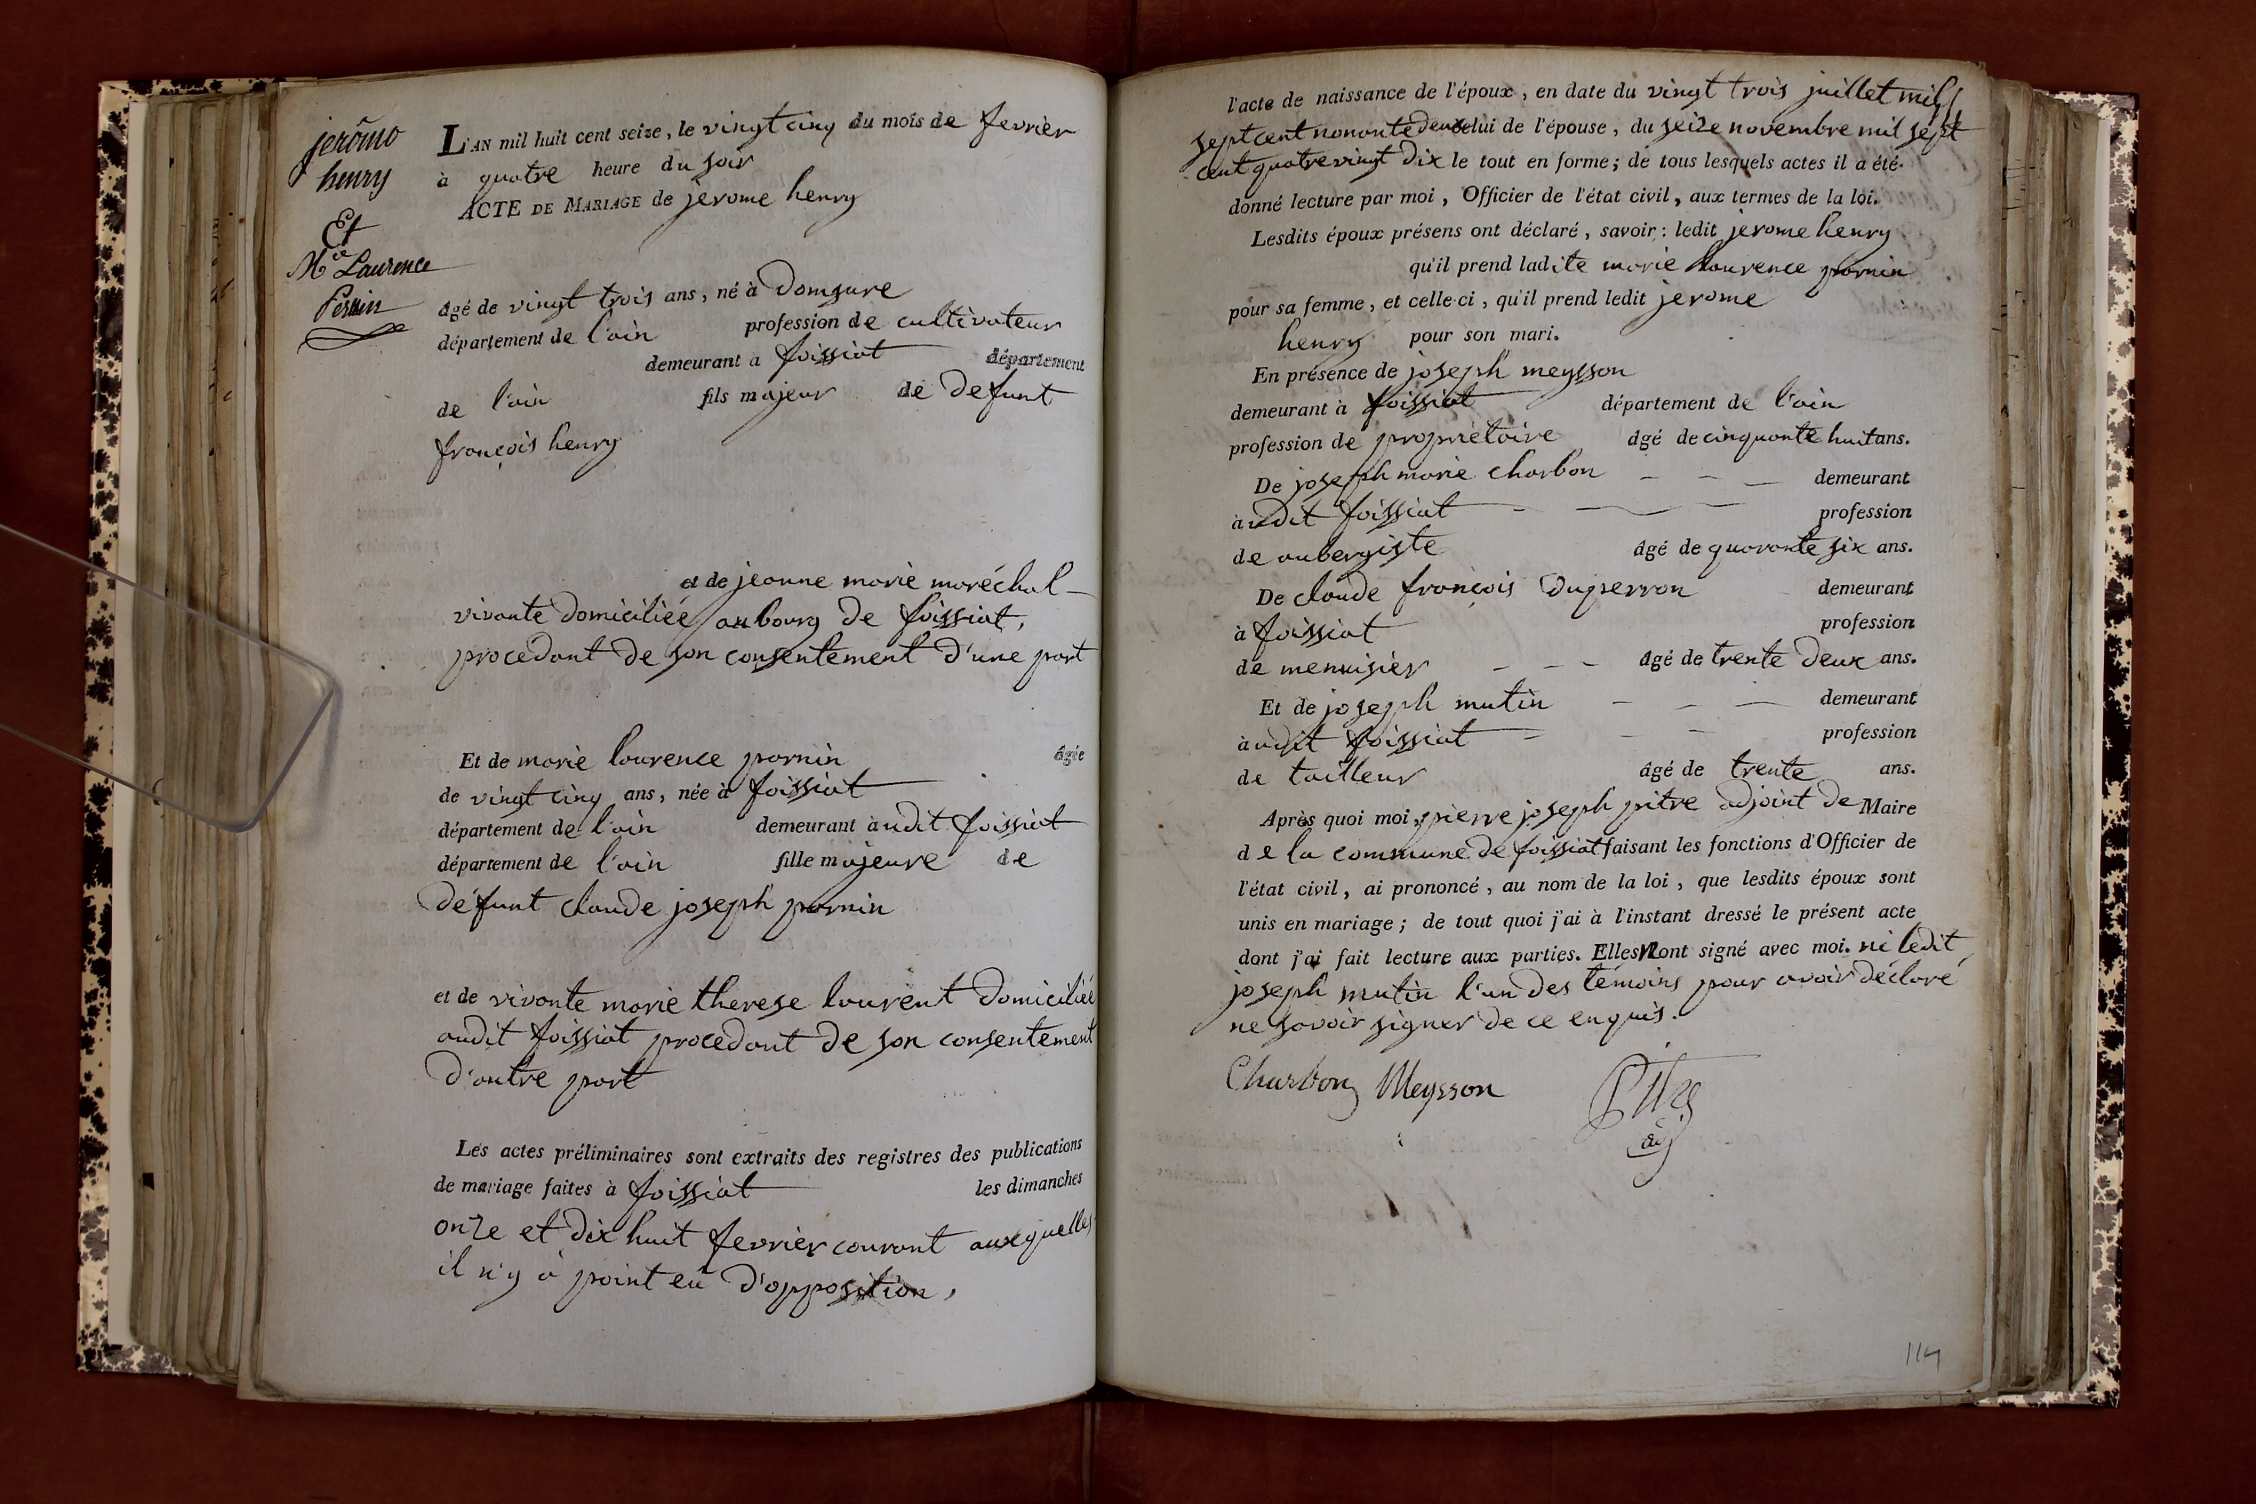 jerômo
henry
Et
Mie Laurence
Pernin
L'AN mil huit cent seize, le vingt cinq du mois de fevrier
à quatre heure du soir
ACTE DE MARIAGE de jerome henry
âgé de vingt trois ans, né à Domsure
département de l'ain profession de cultivateur
demeurant a foissiat département
de l'ain fils majeur de defunt
françois henry
et de jeanne marie maréchal
vivante domiciliée au bourg de foissiat,
procedant de son consentement d'une part
Et de marie laurence pornin âgée
de vingt cinq ans, née à foissiat
département de l'ain demeurant audit foissiat
département de l'ain fille majeure de
défunt claude joseph pornin
et de vivante marie therese laurent domiciliée
audit foissiat procedant de son consentement
d'autre part
Les actes préliminaires sont extraits des registres des publications
de mariage faites à foissiat les dimanches
onze et dix huit fevrier courant auxquelles
il n'y à point eû d'opposition,
l'acte de naissance de l'époux, en date du vingt trois juillet mil
sept cent nonante deux celui de l'épouse, du seize novembre mil sept
cent quatrevingt dix le tout en forme; de tous lesquels actes il a été
donné lecture par moi, Officier de l'état civil, aux termes de la loi.
Lesdits époux présens ont déclaré, savoir: ledit jerome henry
qu'il prend ladite marie laurence pornin
pour sa femme, et celle-ci, qu'il prend ledit jerome
henry pour son mari.
En présence de joseph meysson
demeurant à foissiat département de l'ain
profession de propriétaire âgé de cinquante huit ans.
De joseph marie charbon demeurant
audit foissiat profession
de aubergiste âgé de quarante six ans.
De claude françois Duperron demeurant
à foissiat profession
de menuisier âgé de trente deux ans.
Et de joseph mutin demeurant
audit foissiat profession
de tailleur âgé de trente ans.
Après quoi moi, pierre joseph pitre adjoint de Maire
de la commune de foissiat faisant les fonctions d'Officier de
l'état civil, ai prononcé, au nom de la loi, que lesdits époux sont
unis en mariage; de tout quoi j'ai à l'instant dressé le présent acte
dont j'ai fait lecture aux parties. Elles Nont signé avec moi. ni ledit
joseph mutin l'un des témoins pour avoir déclaré
ne savoir signer de ce enquis.
Charbon Meysson Pitre
adj
114